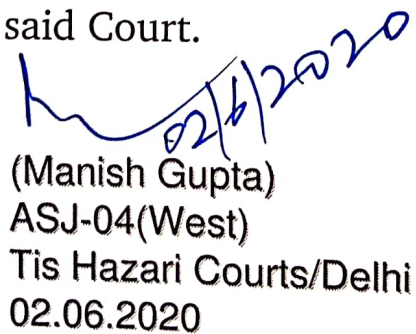 said Court.
02/6/2020
(Manish Gupta)
ASJ-04(West)
Tis Hazari Courts/Delhi
02.06.2020